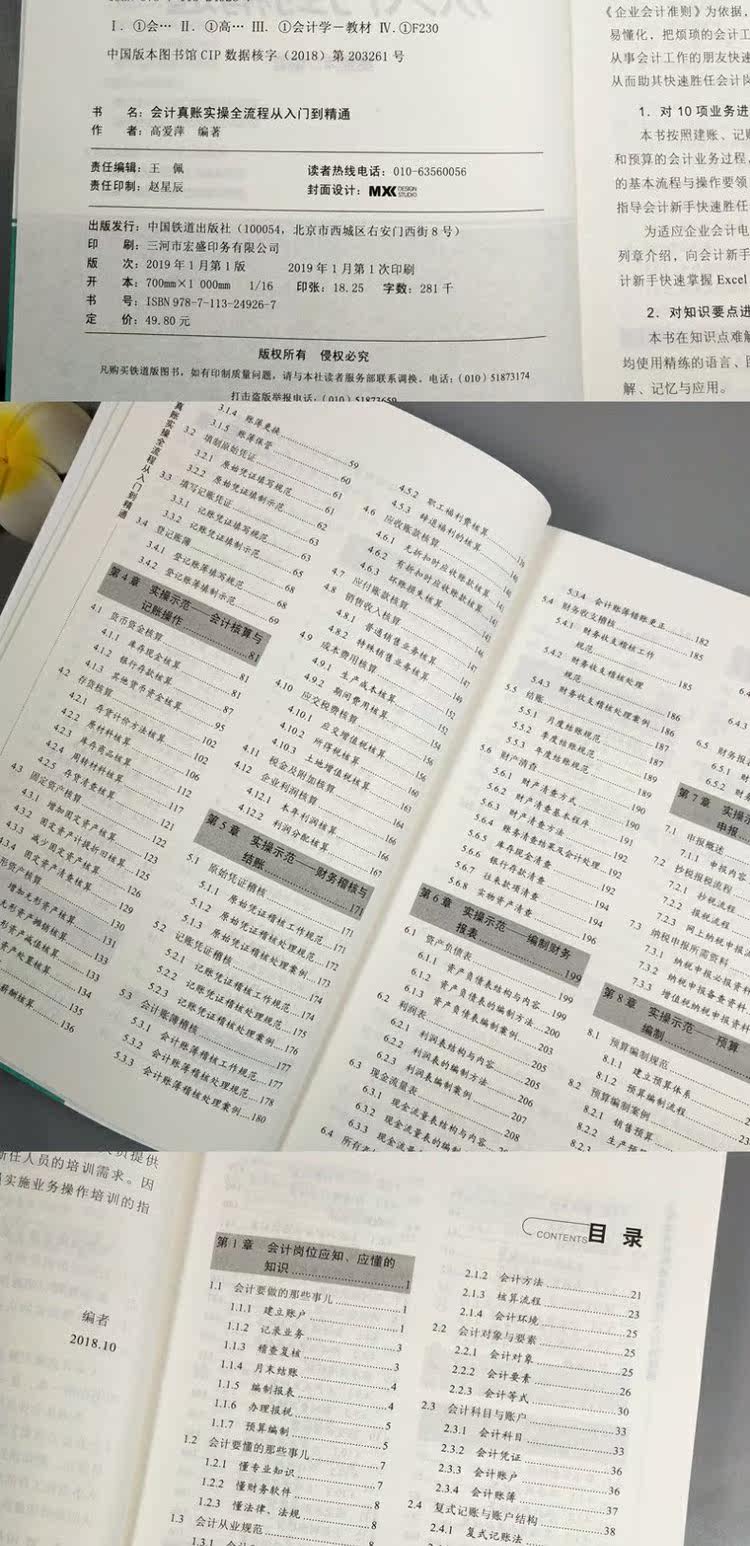 Ⅰ. ①会… Ⅱ. ①高… Ⅲ. ①会计学－教材 Ⅳ.①F230
中国版本图书馆 CIP 数据核字（2018）第 203261 号
书　　名：会计真账实操全流程从入门到精通
作　　者：高爱萍　编著
责任编辑：王　佩
读者热线电话：010-63560056
责任印制：赵星辰
封面设计：MXK DESIGN STUDIO
出版发行：中国铁道出版社（100054，北京市西城区右安门西街 8 号）
印　　刷：三河市宏盛印务有限公司
版　　次：2019 年 1 月第 1 版　2019 年 1 月第 1 次印刷
开　　本：700mm×1 000mm　1/16　印张：18.25　字数：281 千
书　　号：ISBN 978-7-113-24926-7
定　　价：49.80 元
版权所有　侵权必究
凡购买铁道版图书，如有印制质量问题，请与本社读者服务部联系调换。电话：（010）51873174
打击盗版举报电话：（010）51873659
《企业会计准则》为依据，
易懂化，把烦琐的会计工
从事会计工作的朋友快速
从而助其快速胜任会计岗
1．对 10 项业务进
本书按照建账、记账
和预算的会计业务过程，
的基本流程与操作要领
指导会计新手快速胜任
为适应企业会计电
列章介绍，向会计新手
计新手快速掌握 Excel
2．对知识要点进
本书在知识点难解
均使用精练的语言、图
解、记忆与应用。
真账实操全流程从入门到精通
3.1.4 账簿更换
3.1.5 账簿保管 59
3.2 填制原始凭证 60
3.2.1 原始凭证填写规范 61
3.2.2 原始凭证填制示范 61
3.3 填写记账凭证 62
3.3.1 记账凭证填写规范 63
3.3.2 记账凭证填制示范 63
3.4 登记账簿 65
3.4.1 登记账簿填写规范 68
3.4.2 登记账簿填制示范 68
69
第 4 章 实操示范——会计核算与
记账操作 81
4.1 货币资金核算 81
4.1.1 库存现金核算 81
4.1.2 银行存款核算 87
4.1.3 其他货币资金核算 95
4.2 存货核算 102
4.2.1 存货计价方法核算 102
4.2.2 原材料核算 106
4.2.3 库存商品核算 112
4.2.4 周转材料核算 117
4.2.5 存货清查核算 121
4.3 固定资产核算 122
4.3.1 增加固定资产核算 123
4.3.2 固定资产计提折旧核算 125
4.3.3 减少固定资产核算 126
4.3.4 固定资产清查核算 129
形资产核算 130
增加无形资产核算 131
无形资产摊销核算 133
形资产减值核算 133
资产处置核算 134
薪酬核算 135
136
4.5.2 职工福利费核算
4.5.3 辞退福利的核算
4.6 应收账款核算
4.6.1 无折扣时应收账款核算
4.6.2 有折扣时应收账款核算
4.6.3 坏账损失核算
4.7 应付账款核算
4.8 销售收入核算
4.8.1 普通销售业务核算
4.8.2 特殊销售业务核算
4.9 成本费用核算
4.9.1 生产成本核算
4.9.2 期间费用核算
4.10 应交税费核算
4.10.1 应交增值税核算
4.10.2 所得税核算
4.10.3 土地增值税核算
4.11 税金及附加核算
4.12 企业利润核算
4.12.1 本年利润核算
4.12.2 利润分配核算 167
第 5 章 实操示范——财务稽核与
结账 171
5.1 原始凭证稽核 171
5.1.1 原始凭证稽核工作规范 171
5.1.2 原始凭证稽核处理规范 172
5.1.3 原始凭证稽核处理案例 173
5.2 记账凭证稽核 174
5.2.1 记账凭证稽核工作规范 174
5.2.2 记账凭证稽核处理规范 175
5.2.3 记账凭证稽核处理案例 176
5.3 会计账簿稽核 177
5.3.1 会计账簿稽核工作规范 177
5.3.2 会计账簿稽核处理规范 178
5.3.3 会计账簿稽核处理案例 180
5.3.4 会计账簿错账更正 182
5.4 财务收支稽核 185
5.4.1 财务收支稽核工作
规范 185
5.4.2 财务收支稽核处理
规范 186
5.4.3 财务收支稽核处理案例 186
5.5 结账 187
5.5.1 月度结账规范 187
5.5.2 季度结账规范 189
5.5.3 年度结账规范 189
5.6 财产清查 190
5.6.1 财产清查方式 190
5.6.2 财产清查基本程序 191
5.6.3 财产清查方法 192
5.6.4 账务清查结果及会计处理 192
5.6.5 库存现金清查 192
5.6.6 银行存款清查 194
5.6.7 往来款项清查 194
5.6.8 实物资产清查 196
第 6 章 实操示范——编制财务
报表 199
6.1 资产负债表 199
6.1.1 资产负债表结构与内容 199
6.1.2 资产负债表的编制方法 200
6.1.3 资产负债表编制案例 203
6.2 利润表 205
6.2.1 利润表结构与内容 205
6.2.2 利润表的编制方法 206
6.2.3 利润表编制案例 207
6.3 现金流量表 208
6.3.1 现金流量表结构与内容
6.3.2 现金流量表的编制
6.3.3 现金流量
6.4 所有者
6.5 财务报
6.5.1 财
6.5.2 财
第 7 章 实操示
申报
7.1 申报概述
7.1.1 申报内容
7.2 抄税报税流程
7.2.1 抄税流程
7.2.2 报税流程
7.2.3 网上纳税申报流
7.3 纳税申报所需资料
7.3.1 纳税申报必报资料
7.3.2 纳税申报备查资料
7.3.3 增值税纳税申报资料
第 8 章 实操示范——预算
编制
8.1 预算编制规范
8.1.1 建立预算体系
8.1.2 预算编制流程
8.2 预算编制案例
8.2.1 销售预算
8.2.2 生产预
8.2.3
新任人员的培训需求。因
实施业务操作培训的指
编者
2018.10
CONTENTS 目 录
第 1 章 会计岗位应知、应懂的
知识 1
1.1 会计要做的那些事儿 1
1.1.1 建立账户 1
1.1.2 记录业务 3
1.1.3 稽查复核 3
1.1.4 月末结账 4
1.1.5 编制报表 4
1.1.6 办理报税 5
1.1.7 预算编制 5
1.2 会计要懂的那些事儿 7
1.2.1 懂专业知识 7
1.2.2 懂财务软件 8
1.2.3 懂法律、法规 8
1.3 会计从业规范 8
2.1.2 会计方法 21
2.1.3 核算流程 23
2.1.4 会计环境 25
2.2 会计对象与要素 25
2.2.1 会计对象 25
2.2.2 会计要素 26
2.2.3 会计等式 30
2.3 会计科目与账户 33
2.3.1 会计科目 33
2.3.2 会计凭证 36
2.3.3 会计账户 36
2.3.4 会计账簿 37
2.4 复式记账与账户结构 38
2.4.1 复式记账法